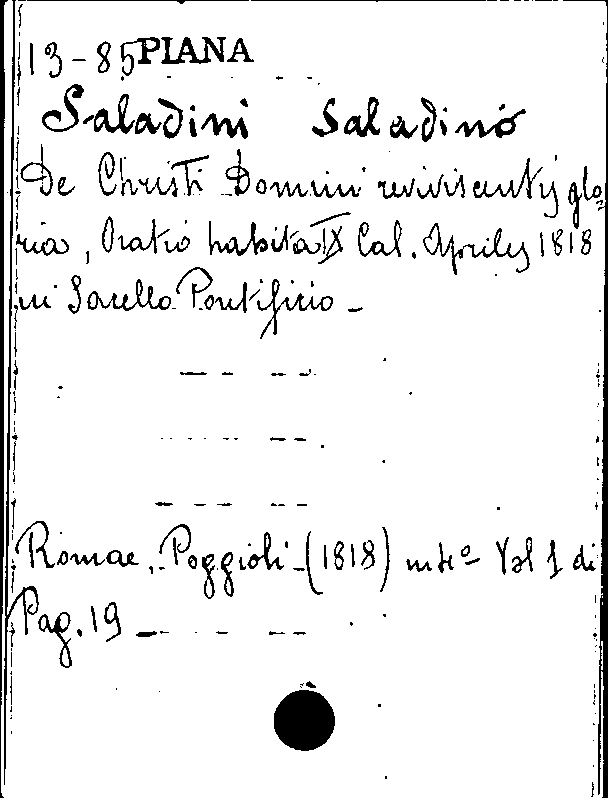 13-85 PIANA
Saladini Saladino
De Christi Domini reviviscentis glo=
ria, Oratio habita IX Cal. Apriles 1818
in Sacello Pontificio -
Romae, Poggioli - (1818) in Vol 1 di
Pag. 19 -